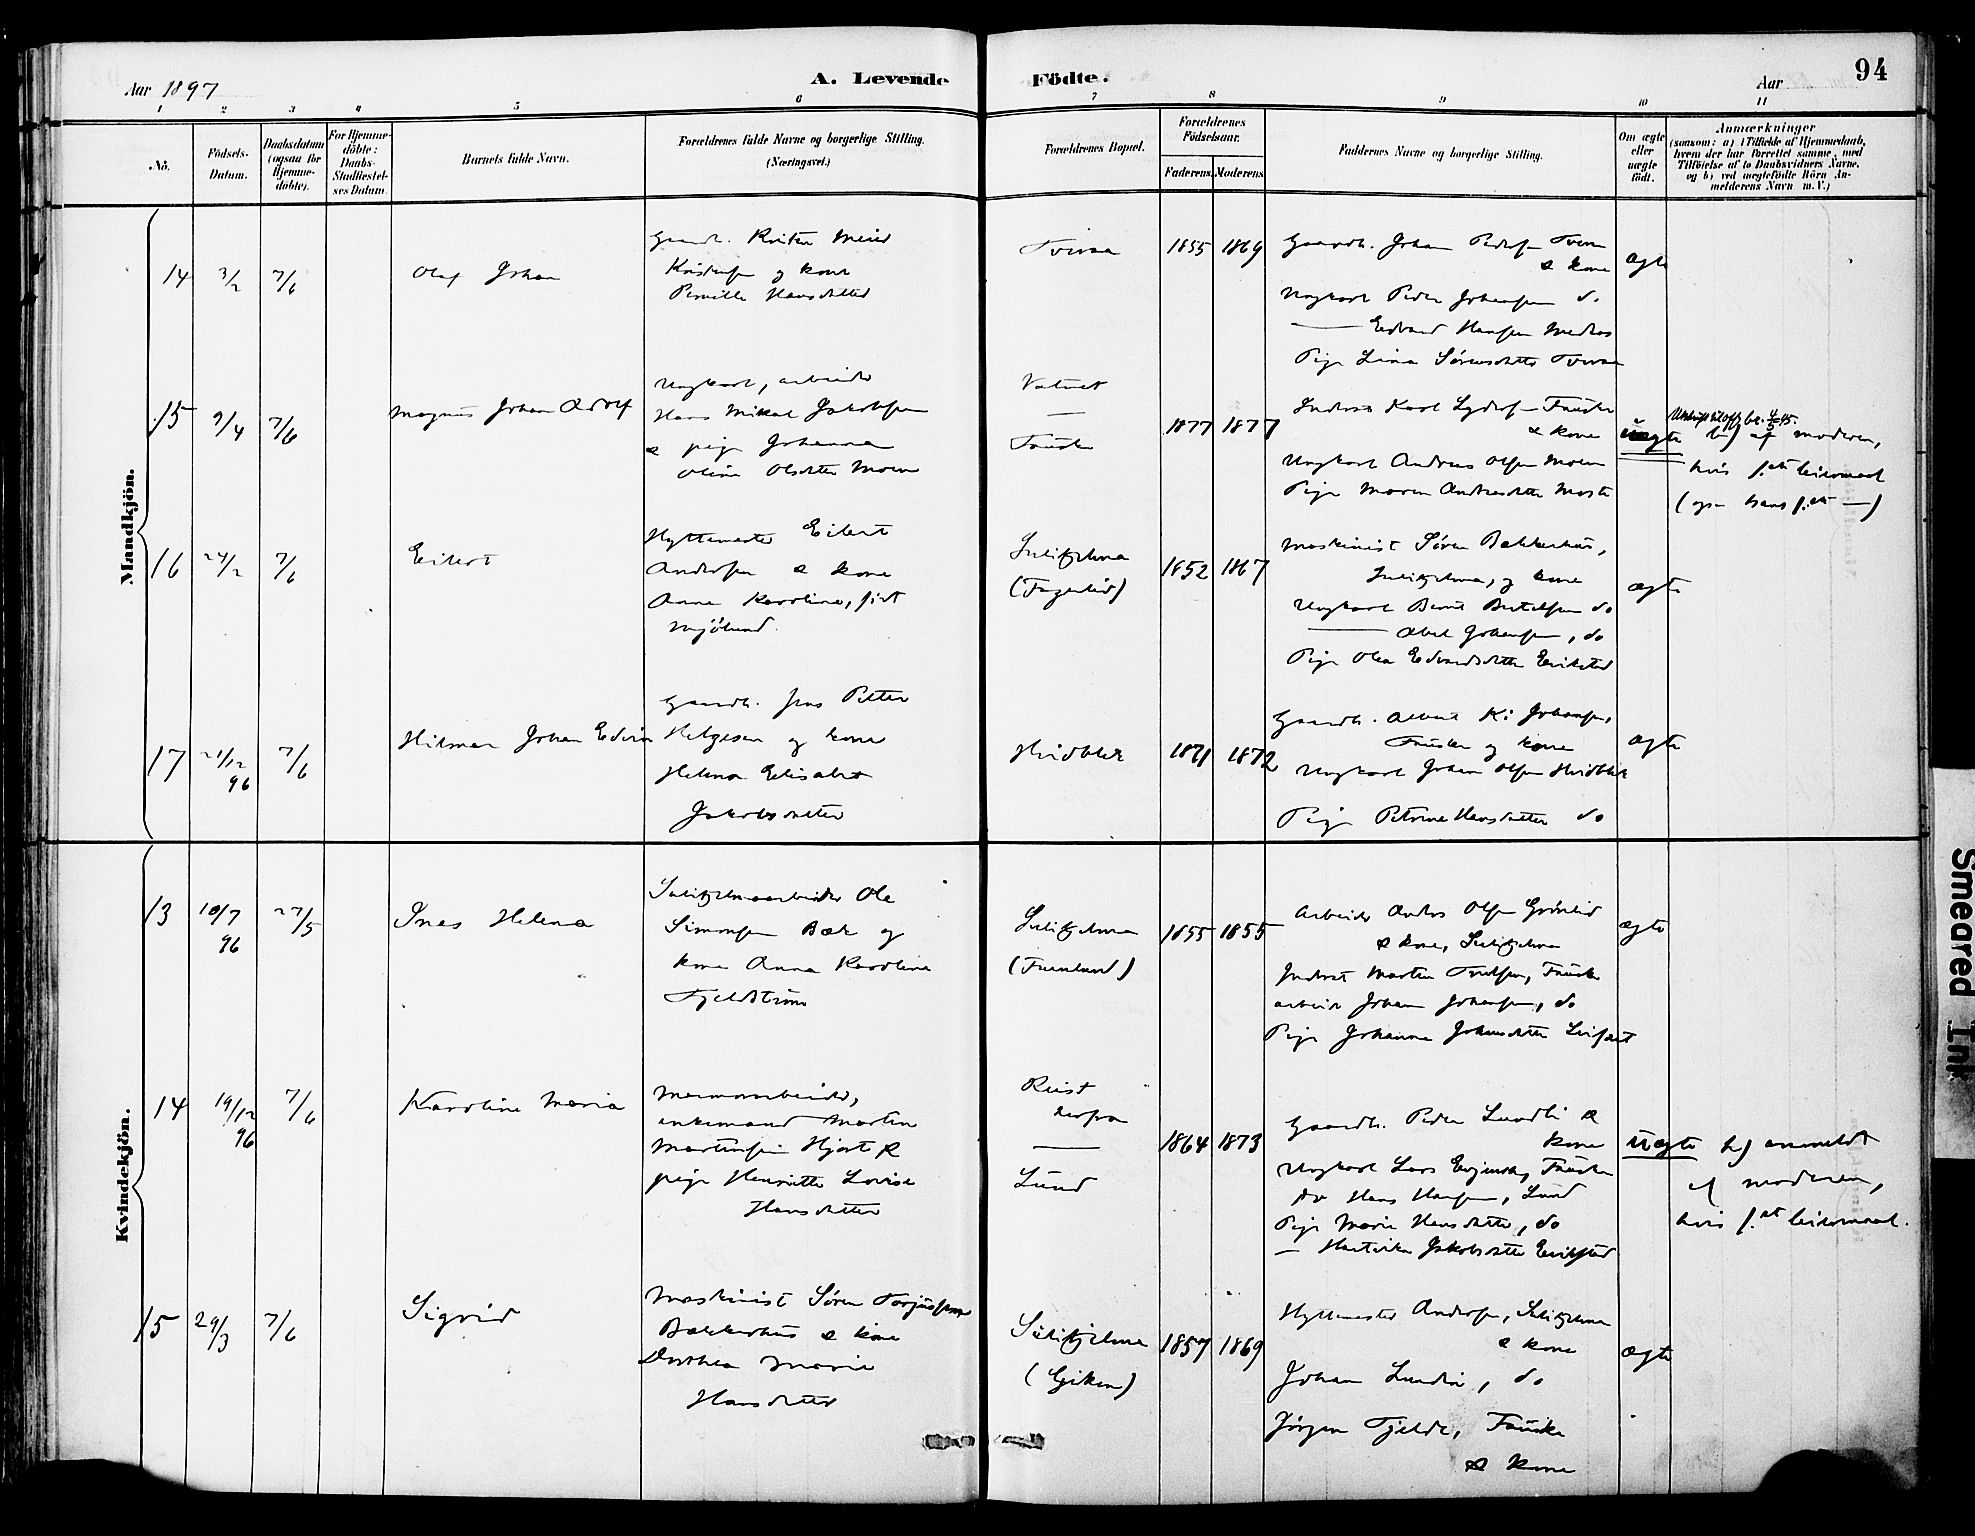 94
Aar 1897
A. Levende Födte.
Aar
1 2 3 4 5 6 7 8 9 10 11
No.
Födsels-Datum.
Daabsdatum (ogsaa for Hjemmedöbte).
For Hjemmedöbte: Daabs-Stadfæstelses Datum.
Barnets fulde Navn.
Forældrenes fulde Navne og borgerlige Stilling.
(Næringsvei.)
Forældrenes Bopæl.
Forældrenes Födselsaar.
Faderens. Moderens.
Faddernes Navne og borgerlige Stilling.
Om ægte eller uægte födt.
Anmærkninger
(saasom: a) i Tilfælde af Hjemmedaab,
hvem der har forrettet samme, med
Tilföielse af to Daabsvidners Navne,
og b) ved uægtefödte Börn An-
melderens Navn m. V.)
Mandkjön.
14 3/2 7/6 Olaf Johan
Gaardb. Kristen Meier
Kristensen og kone
Pernille Hansdatter
Tveraa
1855 1869
Gaardb. Johan Pedersen Tveraa
& kone
Ungkarl Peder Johansen do
Edvard Hansen
Pige Lina Sørensdatter Tveraa
ægte
15 9/4 7/6 Magnus Johan Adolf
Ungkarl, arbeider
Hans Mikal Jakobsen
& pige Johanna
Oline Olsdatter Moen
Vatnet
—
Fauske
1877 1877
Inderst Karl Fauske
& kone
Ungkarl Andreas Olsen Moen
Pige Maren Andreasdatter
uægte
b) af moderen,
hvis 1.ste leiermaal
(ogsaa hans 1.ste —)
16 24/2 7/6 Eilert
Hyttemester Eilert
Andersen & kone
Anna Karoline, født
Mjölund.
Sulitjelma
(Fagerlid)
1852 1867
Maskinist Søren Bækkerhus,
Sulitjelma, og kone
Ungkarl Bertelsen do
Johansen, do
Pige Olea Edvardsdatter Erikstad
ægte
17 21/12 96 7/6 Hilmar Johan Edvin
Gaardb. Jens Petter
Helgesen og kone
Helena Elisabet
Jakobsdatter
Hvidblik
1871 1872
Gaardb. Albert Kr. Johansen,
Fauske og kone
Ungkarl Johan Olsen Hvidblik
Pige Petrine Hansdatter do
ægte
Kvindekjön.
13 10/7 96 27/5 Ines Helena
Sulitjelmaarbeider Ole
Simonsen Bæk og
kone Anna Karoline
Fjeldstrøm
Sulitjelma
(Furulund)
1855 1855
Arbeider Anders Olsen Grönlid
& kone, Sulitjelma
Inderst Martin Fauske
arbeider Johan Johansen, do
Pige Johanna Johansdatter
ægte
14 19/12 96 7/6 Karoline Maria
enkemand Martin
Martinsen Hjort &
pige Henriette Lovise
Hansdatter
Reist
herfra
—
Lund
1864 1873
Gaardb. Peder Lundli &
kone
Ungkarl Lars Fauske
do Hans Hansen, Lund
Pige Marie Hansdatter, do
— Jakobsdatter Erikstad
uægte
b) anmeldt
af moderen,
hvis 1.ste leiermaal.
15 29/3 7/6 Sigrid
Maskinist Søren Torjussen
Bækkerhus & kone
Dorthea Marie
Hansdatter
Sulitjelma
(Giken)
1857 1869
Hyttemester Andersen, Sulitjelma
& kone
Johan Lundin, do
Jörgen Fjelde, Fauske
& kone
ægte
Smeared Ink